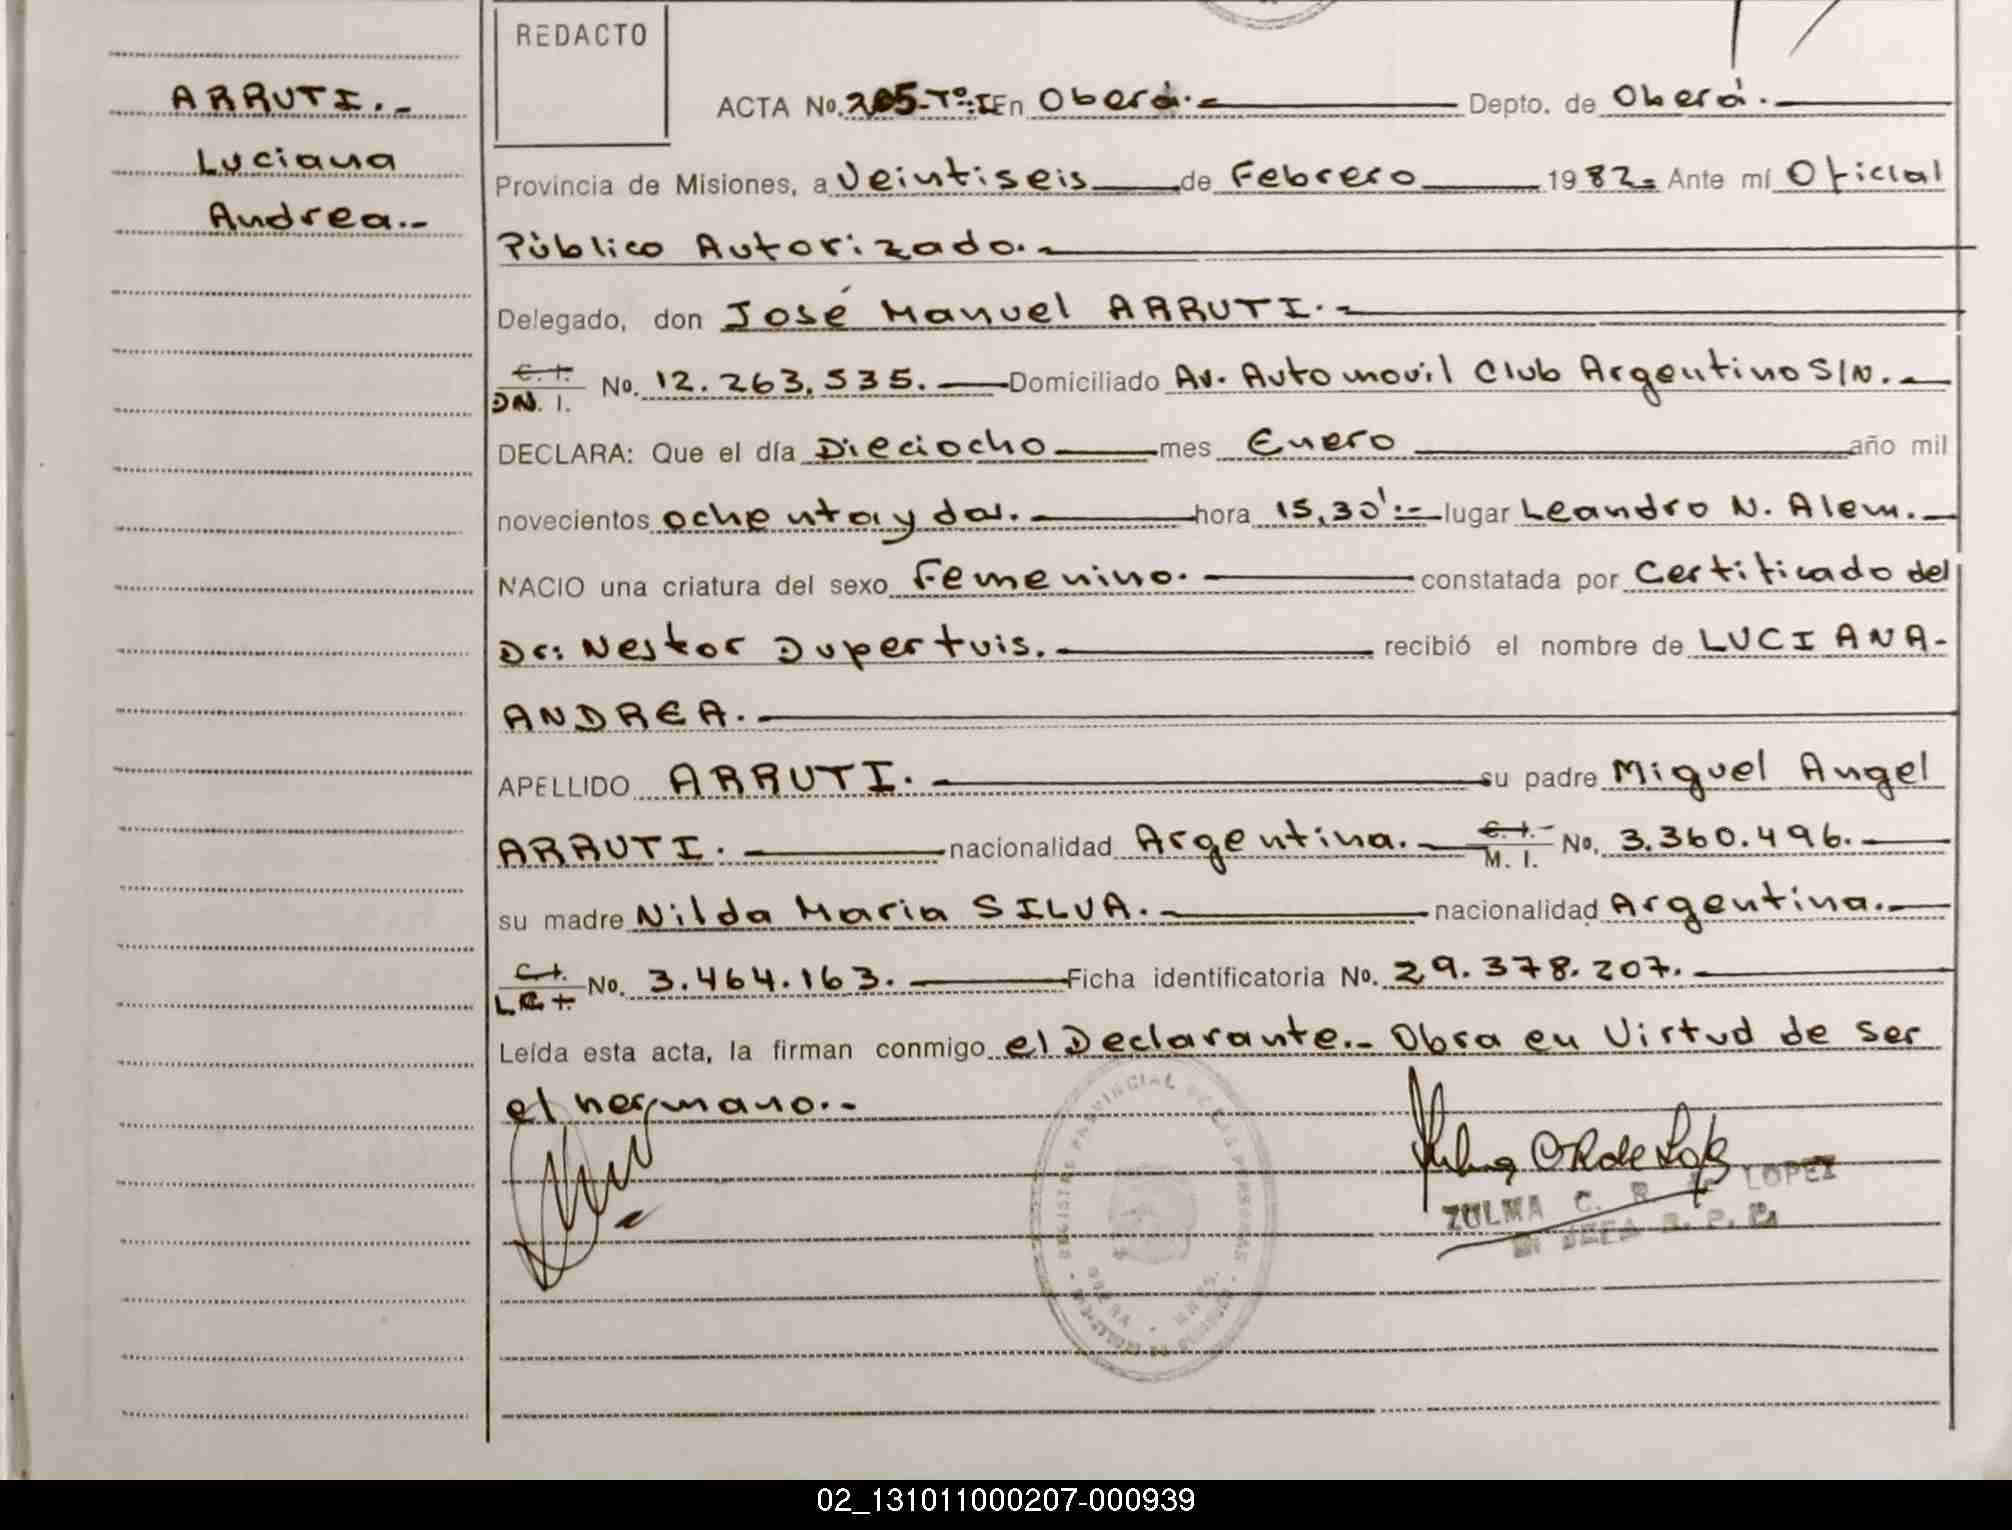 REDACTO
ARRUTI.-
Luciana
Andrea.-
ACTA No. 205-Tº:I En Oberá.- Depto. de Oberá.-
Provincia de Misiones, a Veintiseis de Febrero 1982.- Ante mí Oficial
Público Autorizado.-
Delegado, don José Manuel ARRUTI.-
C. I.
DN. I. No. 12.263.535. Domiciliado Av. Automovil Club Argentino S/N.-
DECLARA: Que el día Dieciocho mes Enero año mil
novecientos ochenta y dos. hora 15,30':- lugar Leandro N. Alem.-
NACIO una criatura del sexo Femenino. constatada por Certificado del
Dr: Nestor Dupertuis. recibió el nombre de LUCIANA-
ANDREA.-
APELLIDO ARRUTI.- su padre Miguel Angel
ARRUTI. nacionalidad Argentina.- C. I. M. I. No. 3.360.496.-
su madre Nilda Maria SILVA.- nacionalidad Argentina.-
C. I. No. 3.464.163. Ficha identificatoria No. 29.378.207.-
Leída esta acta, la firman conmigo el Declarante.- Obra en Virtud de ser
el hermano.-
REGISTRO PROVINCIAL DE LAS PERSONAS
OBERA - MNES.
ZULMA C. R. de LOPEZ
JEFA R. P. P.
02_131011000207-000939